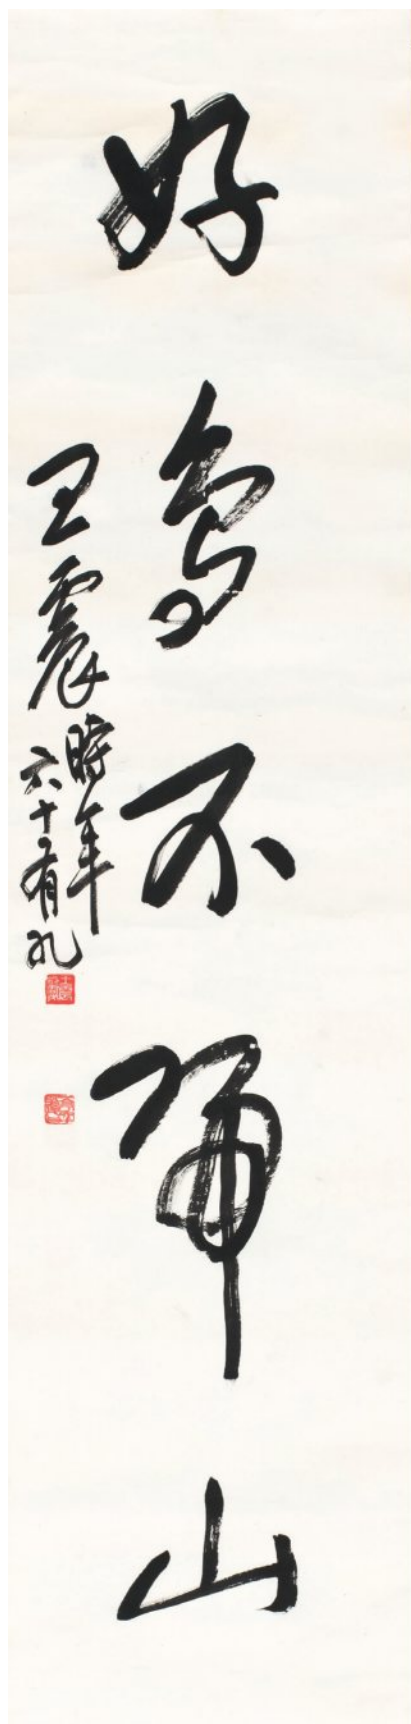 好鳥不歸山
王震
時年
六十有九